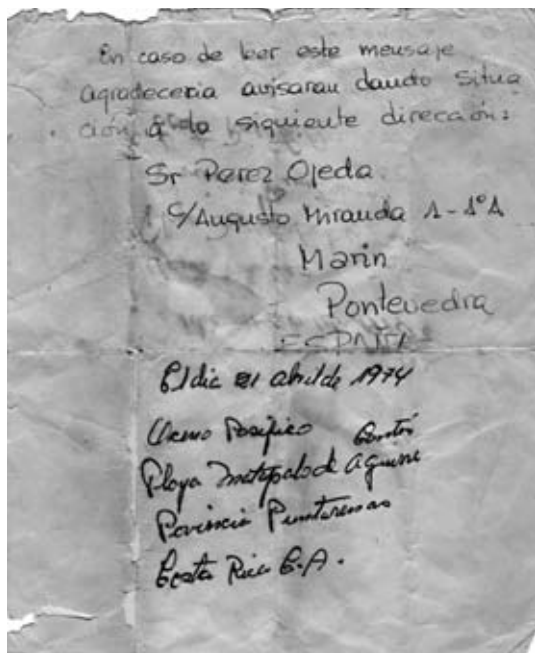 En caso de leer este mensaje
agradeceria avisaran dando situa
ción a la siguiente dirección:
Sr Perez Ojeda
C/Augusto Miranda 1-1ºA
Marin
Pontevedra
ESPAÑA
El dia 21 abril de 1974
Oceano Pacifico Cantón
Playa Matapalo de Aguirre
Provincia Puntarenas
Costa Rica C.A.